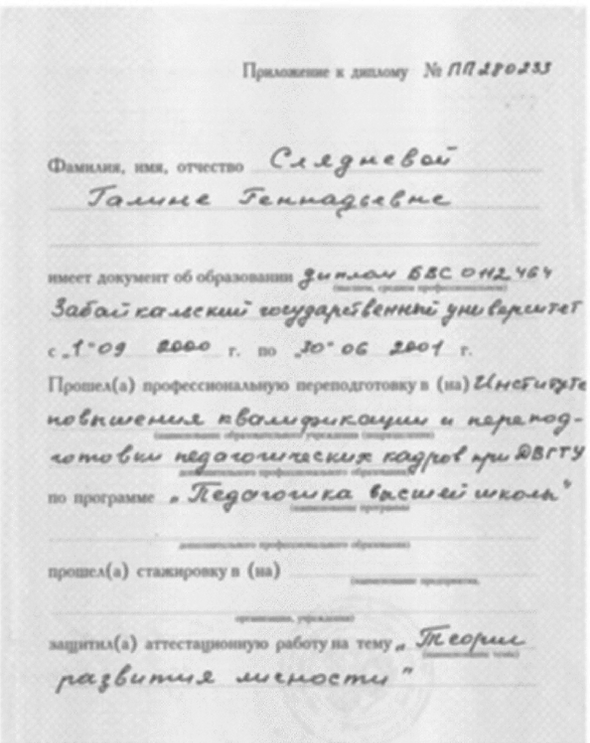 Приложение к диплому № ПП 280233
Фамилия, имя, отчество Слядневой
Галине Геннадьевне
имеет документ об образовании диплом БВС 0112464
(высшем, среднем профессиональном)
Забайкальский государственный университет
с „1“ 09 2000 г. по „30“ 06 2001 г.
Прошел(а) профессиональную переподготовку в (на) Институте
повышения квалификации и перепод-
(наименование образовательного учреждения (подразделения)
готовки педагогических кадров при ДВГТУ
дополнительного профессионального образования)
по программе „Педагогика высшей школы“
(наименование программы
дополнительного профессионального образования)
прошел(а) стажировку в (на)
(наименование предприятия,
организации, учреждения)
защитил(а) аттестационную работу на тему „Теории
(наименование темы)
развития личности“